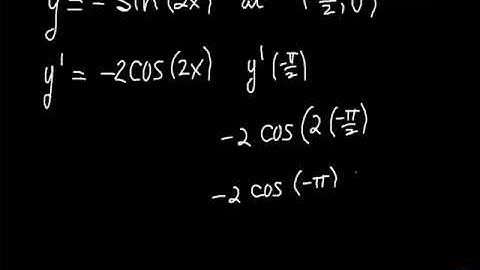 y = - sin (2x) at
y' = -2cos(2x) y'(-π/2)
-2 cos (2(-π/2)
-2 cos (-π)